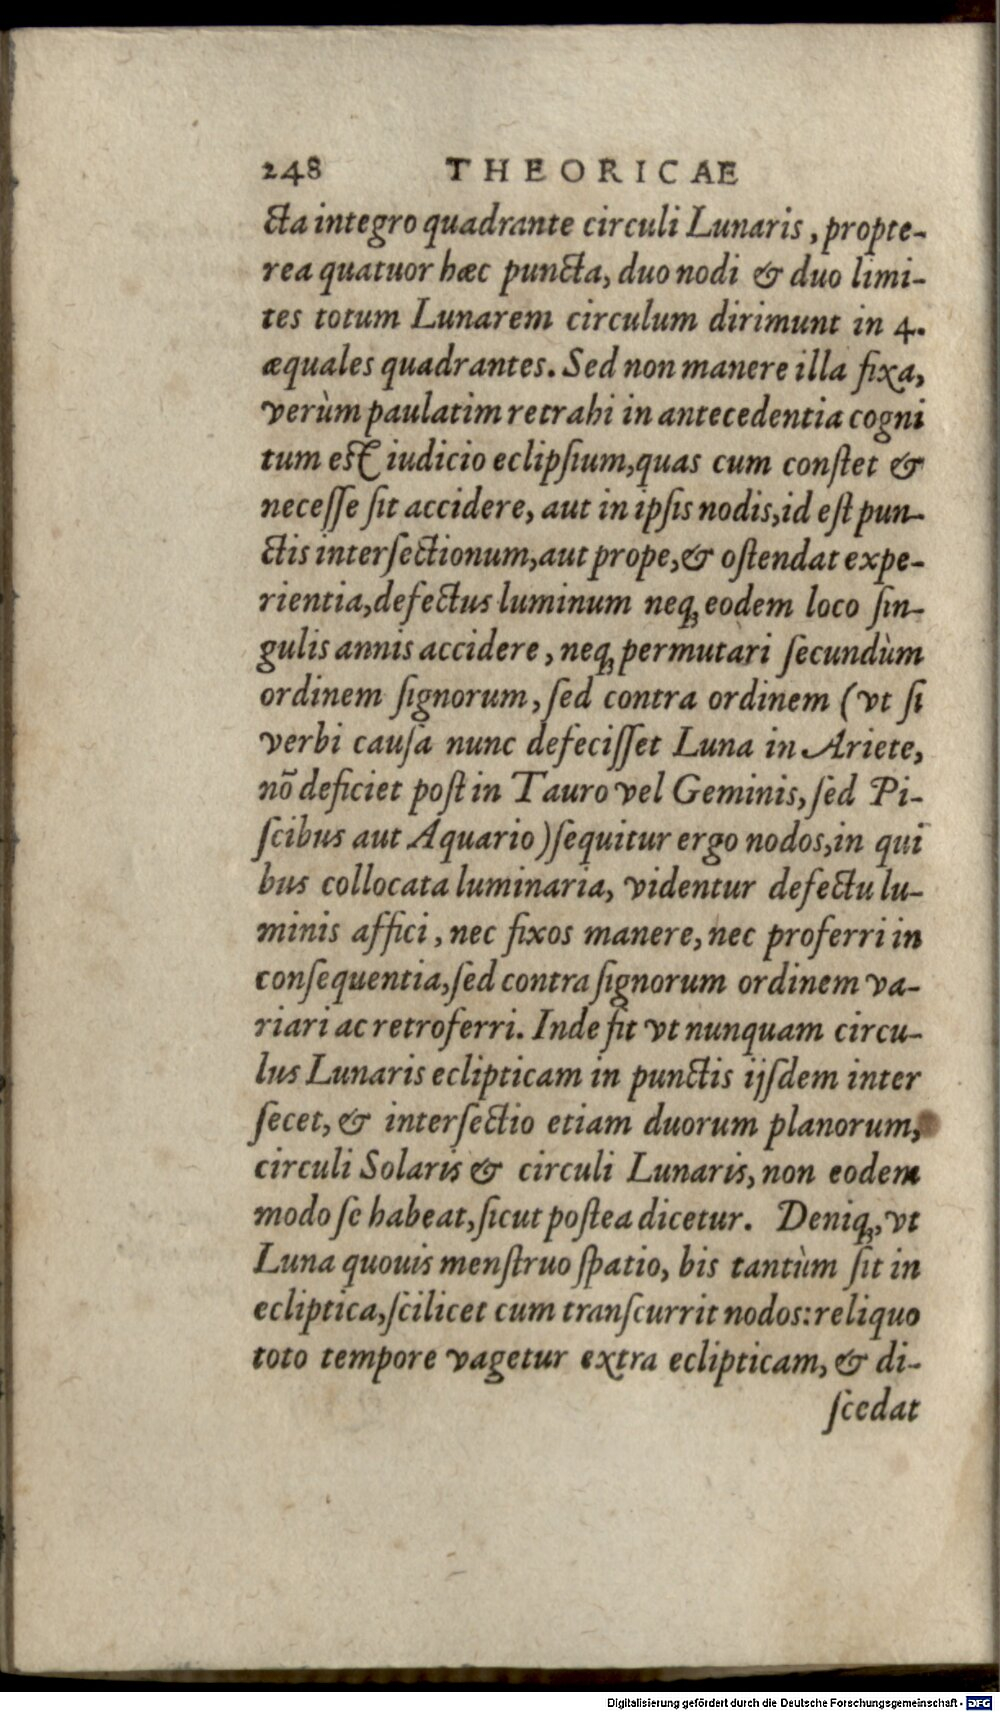 248 THEORICAE
cta integro quadrante circuli Lunaris, propte-
rea quatuor hæc puncta, duo nodi & duo limi-
tes totum Lunarem circulum dirimunt in 4.
æquales quadrantes. Sed non manere illa fixa,
verùm paulatim retrahi in antecedentia cogni
tum est iudicio eclipſium, quas cum conſtet &
neceſſe ſit accidere, aut in ipſis nodis, id eſt pun-
ctis interſectionum, aut prope, & oſtendat expe-
rientia, defectus luminum neq; eodem loco ſin-
gulis annis accidere, neq; permutari ſecundùm
ordinem ſignorum, ſed contra ordinem (vt ſi
verbi cauſa nunc defeciſſet Luna in Ariete,
nõ deficiet poſt in Tauro vel Geminis, ſed Pi-
ſcibus aut Aquario) ſequitur ergo nodos, in qui
bus collocata luminaria, videntur defectu lu-
minis affici, nec fixos manere, nec proferri in
conſequentia, ſed contra ſignorum ordinem va-
riari ac retroferri. Inde fit vt nunquam circu-
lus Lunaris eclipticam in punctis ijſdem inter
ſecet, & interſectio etiam duorum planorum,
circuli Solaris & circuli Lunaris, non eodem
modo ſe habeat, ſicut poſtea dicetur. Deniq;, vt
Luna quouis menſtruo ſpatio, bis tantùm ſit in
ecliptica, ſcilicet cum tranſcurrit nodos: reliquo
toto tempore vagetur extra eclipticam, & di-
ſcedat
Digitalisierung gefördert durch die Deutsche Forschungsgemeinschaft - DFG